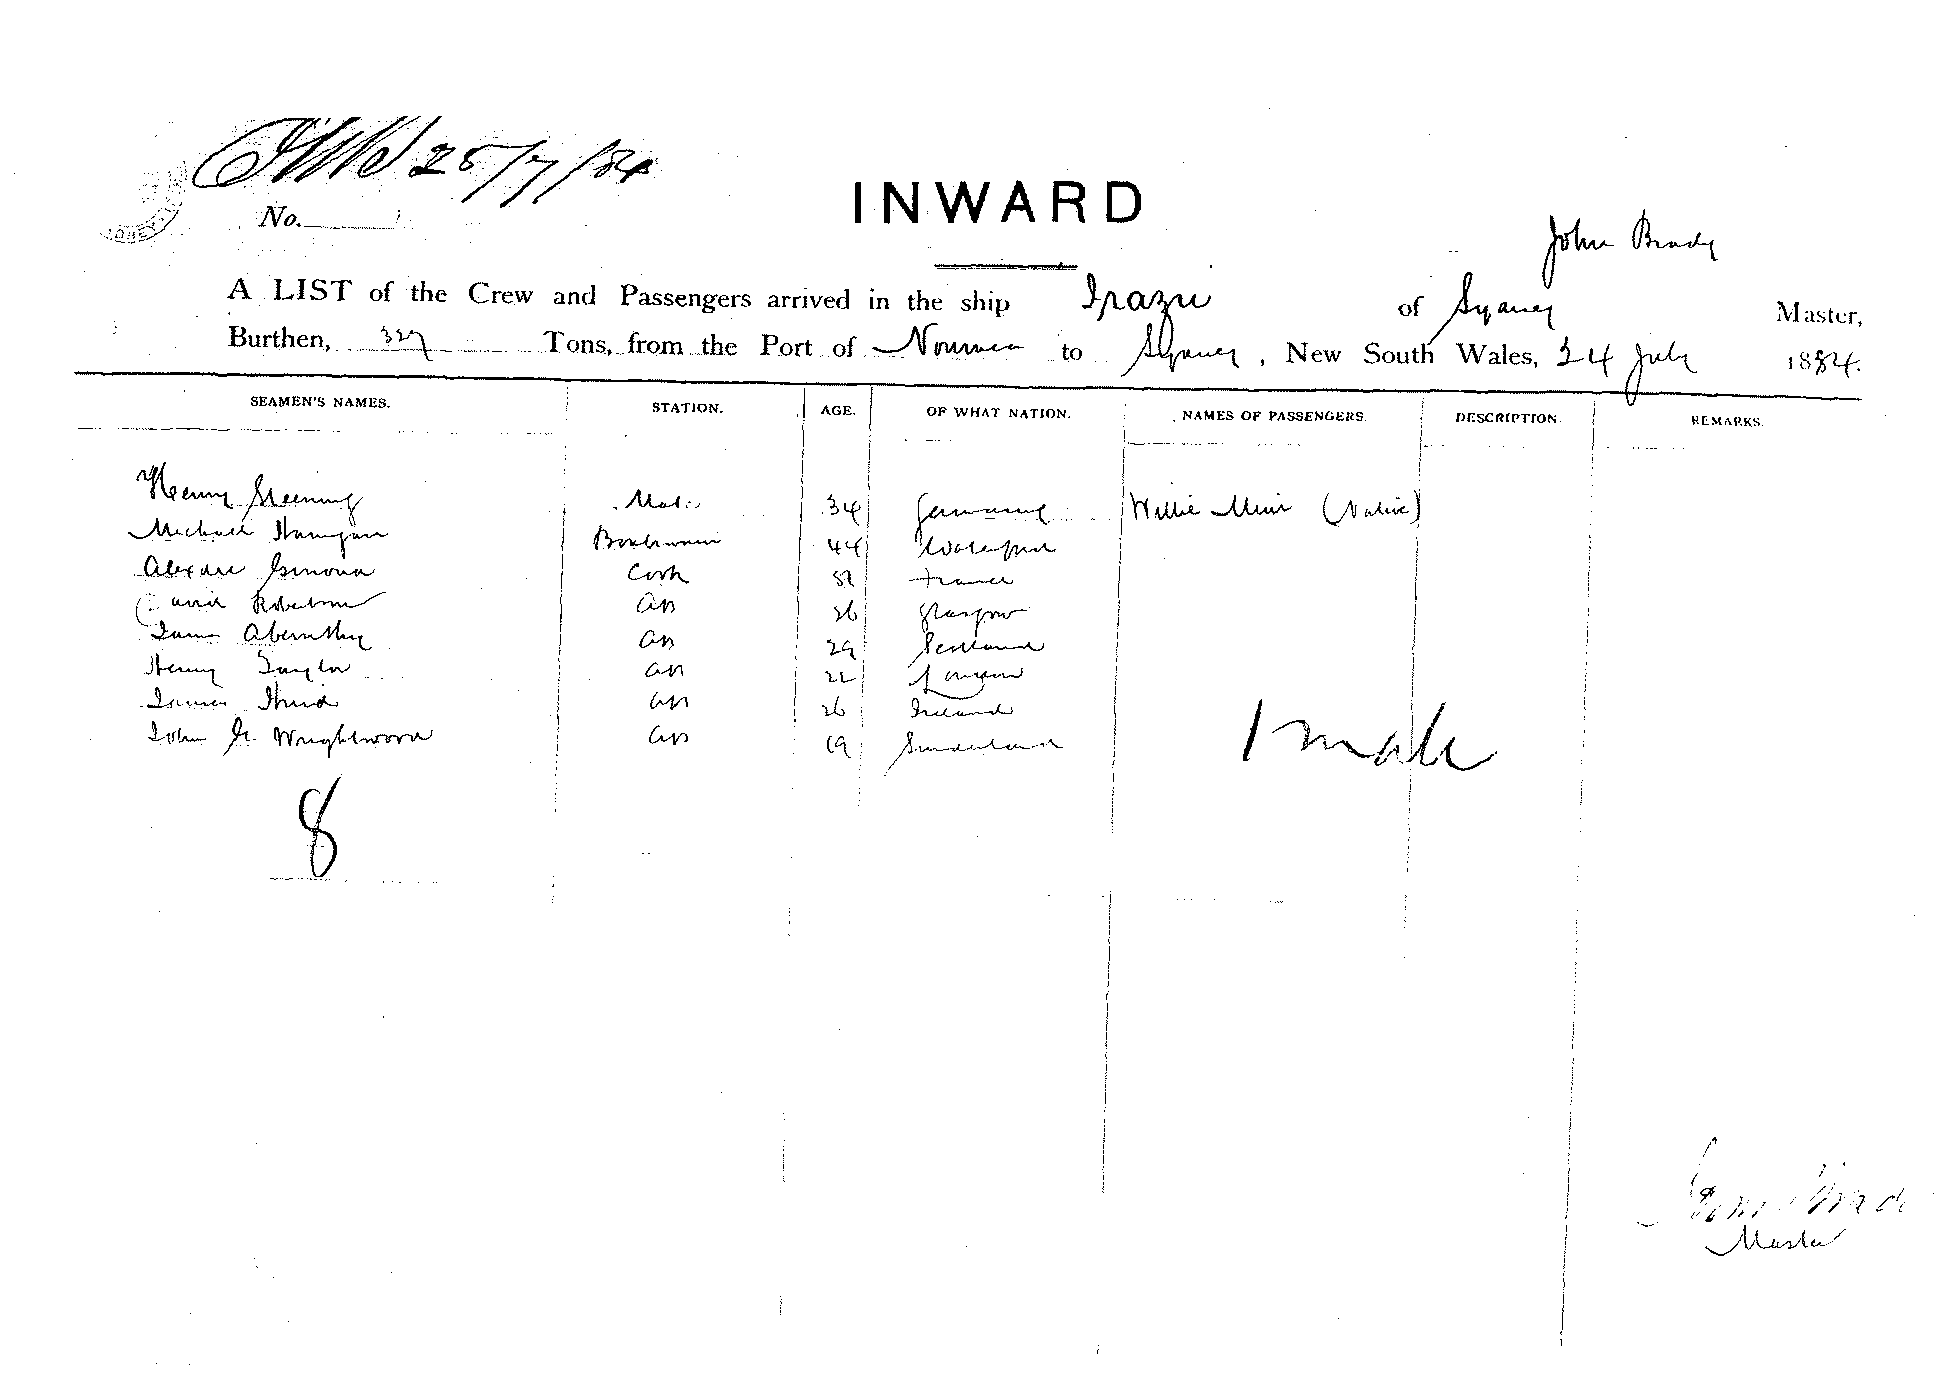 25/7/84
No.
INWARD
John Brady
A LIST of the Crew and Passengers arrived in the ship Irazu of Sydney Master,
Burthen, 327 Tons, from the Port of Noumea to Sydney, New South Wales, 24 July 1884.
SEAMEN'S NAMES. STATION. AGE. OF WHAT NATION. NAMES OF PASSENGERS. DESCRIPTION. REMARKS.
Henry Mate 34 Germany Willie Muir (Native)
Michael Hanigan Boatswain 44 Waterford
Cook France
David Robertson AB 26 Glasgow
James Abernethy AB 29 Scotland
Henry Taylor AB 22 London
James AB 26 Ireland
John G. Wrightwood AB 19 Sunderland
1 male
8
Master